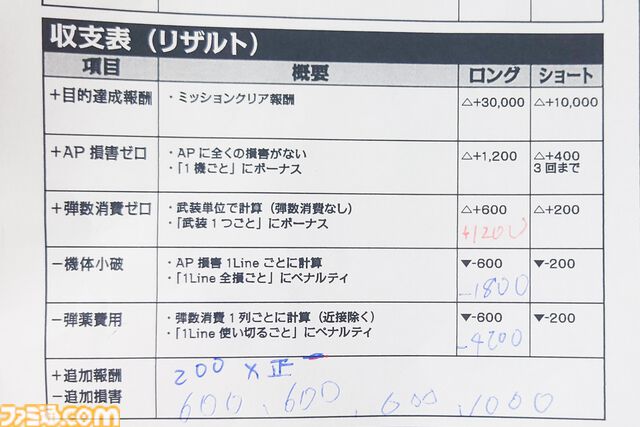 収支表（リザルト）
項目 概要 ロング ショート
+目的達成報酬 ・ミッションクリア報酬 △+30,000 △+10,000
+AP損害ゼロ ・APに全くの損害がない △+1,200 △+400
・「1機ごと」にボーナス 3回まで
+弾数消費ゼロ ・武装単位で計算（弾数消費なし） △+600 △+200
・「武装1つごと」にボーナス +1200
−機体小破 ・AP損害1Lineごとに計算 ▼-600 ▼-200
・「1Line全損ごと」にペナルティ -1800
−弾薬費用 ・弾数消費1列ごとに計算（近接除く） ▼-600 ▼-200
・「1Line使い切るごと」にペナルティ -4200
+追加報酬 200×正一
−追加損害 600、600、600、1000
ファミ通.com